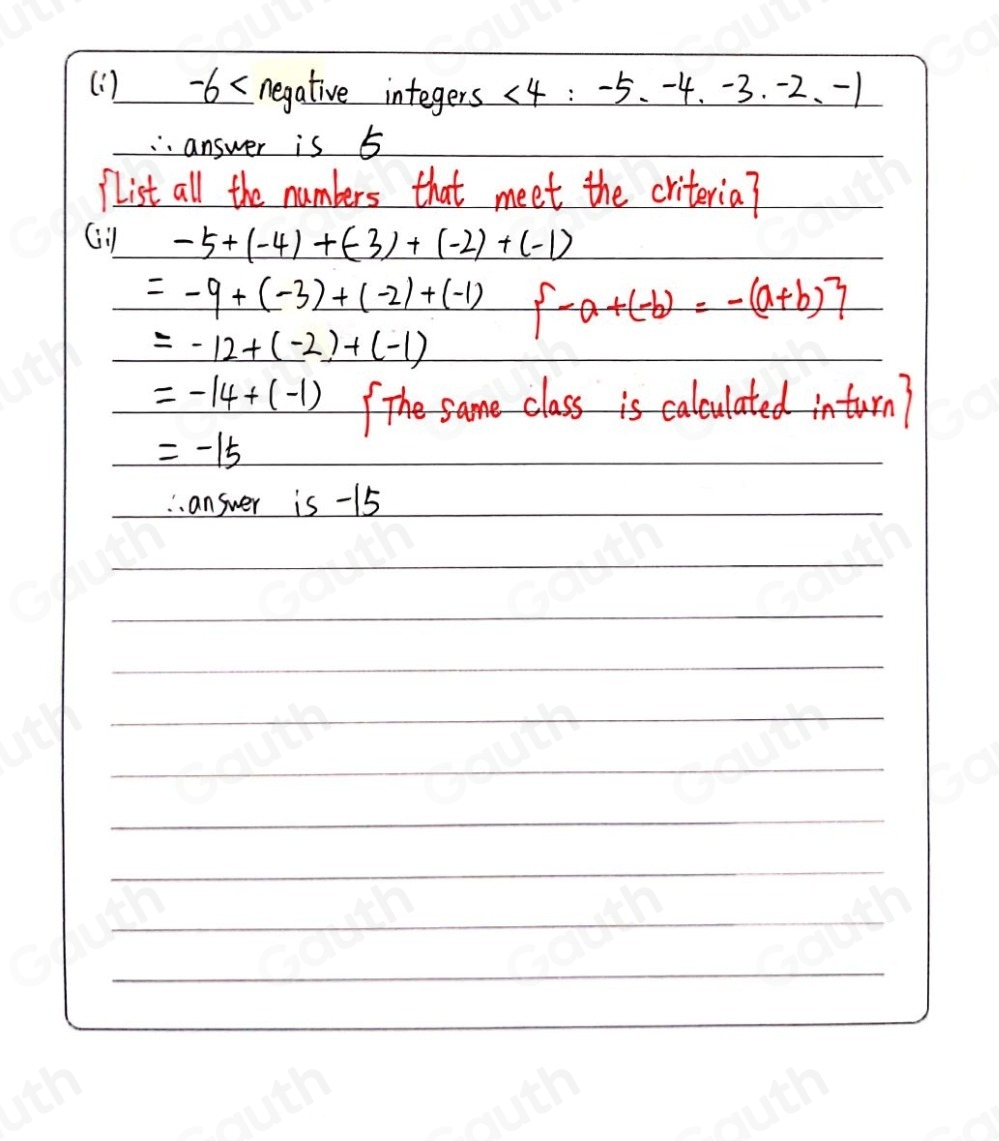 (i) -6 < negative integers < 4 : -5、-4、-3、-2、-1
∴ answer is 5
{List all the numbers that meet the criteria}
(ii) -5+(-4)+(-3)+(-2)+(-1)
= -9+(-3)+(-2)+(-1) {-a+(-b) = -(a+b)}
= -12+(-2)+(-1)
= -14+(-1) {The same class is calculated in turn}
= -15
∴ answer is -15